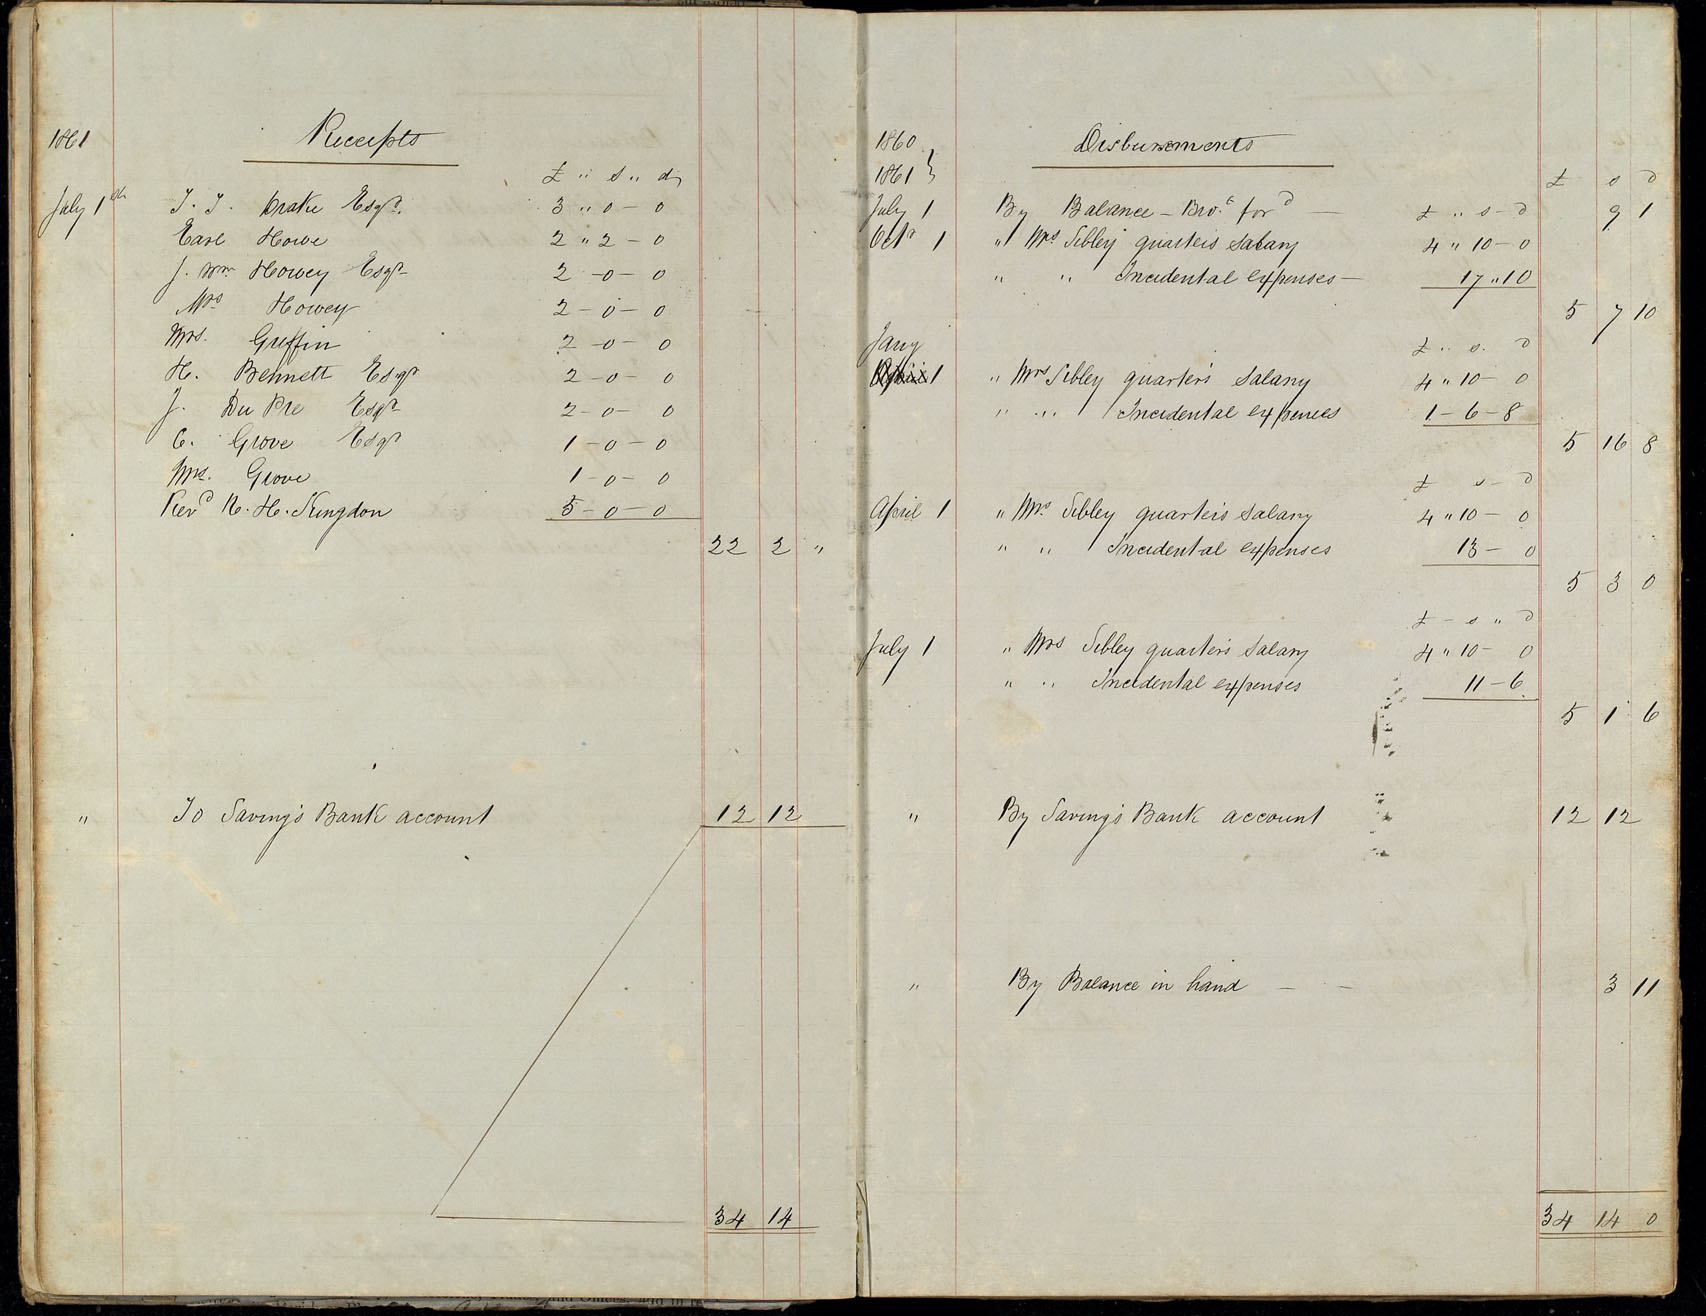 1861
Receipts
£ " s " d
July 1st T. T. Drake Esqr. 3 " 0 - 0
Earl Howe 2 " 2 - 0
J. Wm. Howey Esqr 2 - 0 - 0
Mrs Howey 2 - 0 - 0
Mrs. Griffin 2 - 0 - 0
H. Bennett Esqr 2 - 0 - 0
J. Du Pre Esqr 2 - 0 - 0
C. Grove Esqr 1 - 0 - 0
Mrs. Grove 1 - 0 - 0
Revd N. H. Kingdon 5 - 0 - 0
22 2 "
" To Saving's Bank account 12 12
34 14
1860
1861 }
Disbursements
£ s d
July 1 By Balance - Brot. ford — £ " s - d 9 1
Octr 1 " Mrs Sibley quarters salary 4 " 10 - 0
" " Incidental expenses — 17 " 10
5 7 10
Jany £ " s. d
1 " Mrs Sibley quarter's salary 4 " 10 - 0
" " Incidental expences 1 - 6 - 8
5 16 8
£ s - d
April 1 " Mrs. Sibley quarters salary 4 " 10 - 0
" " Incidental expenses 13 - 0
5 3 0
£ - s " d
July 1 " Mrs Sibley quarter's salary 4 " 10 - 0
" " Incidental expenses 11 - 6
5 1 6
" By Saving's Bank account 12 12
" By Balance in hand — — 3 11
34 14 0